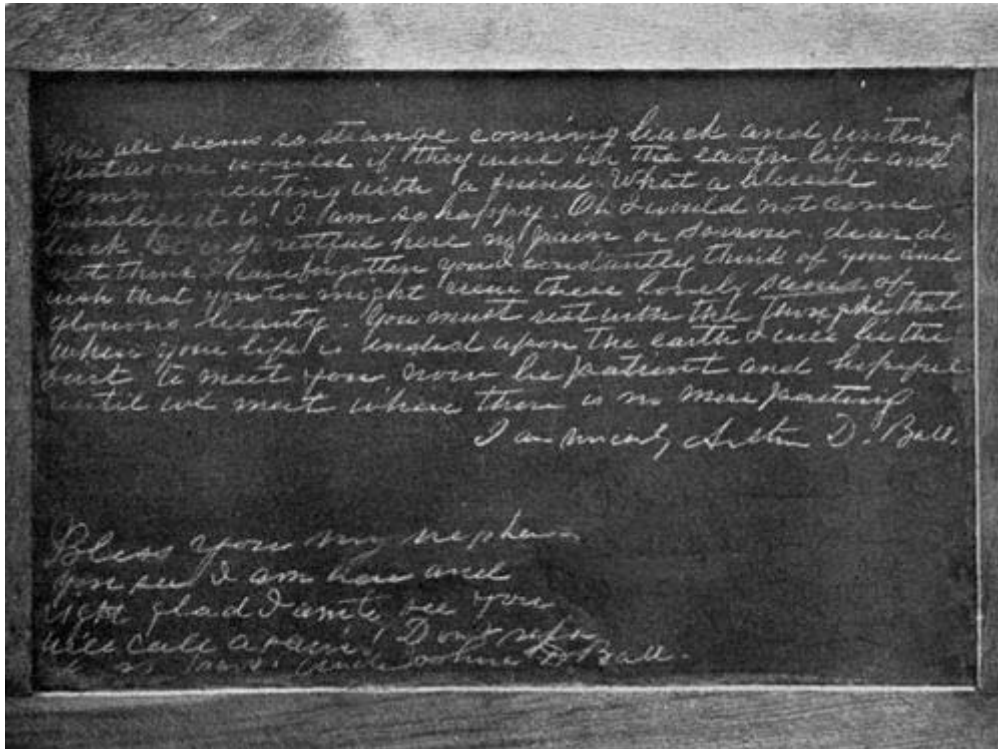 all seems so strange coming back and writing
just as one would if they were in the earth life and
communicating with a friend. What a blessed
privilege it is! I am so happy. Oh I would not come
back It is so restful here no pain or sorrow. dear do
not think I have forgotten you I constantly think of you and
wish that you too might view these lovely scenes of
glorious beauty. You must rest with the thought that
when your life is ended upon the earth I will be the
first to meet you now be patient and hopeful
until we meet where there is no more parting
I am sincerely D. Ball.
Bless you my nephew
you see I am here and
right glad I am to see you
will call again! Don't
D. Ball.